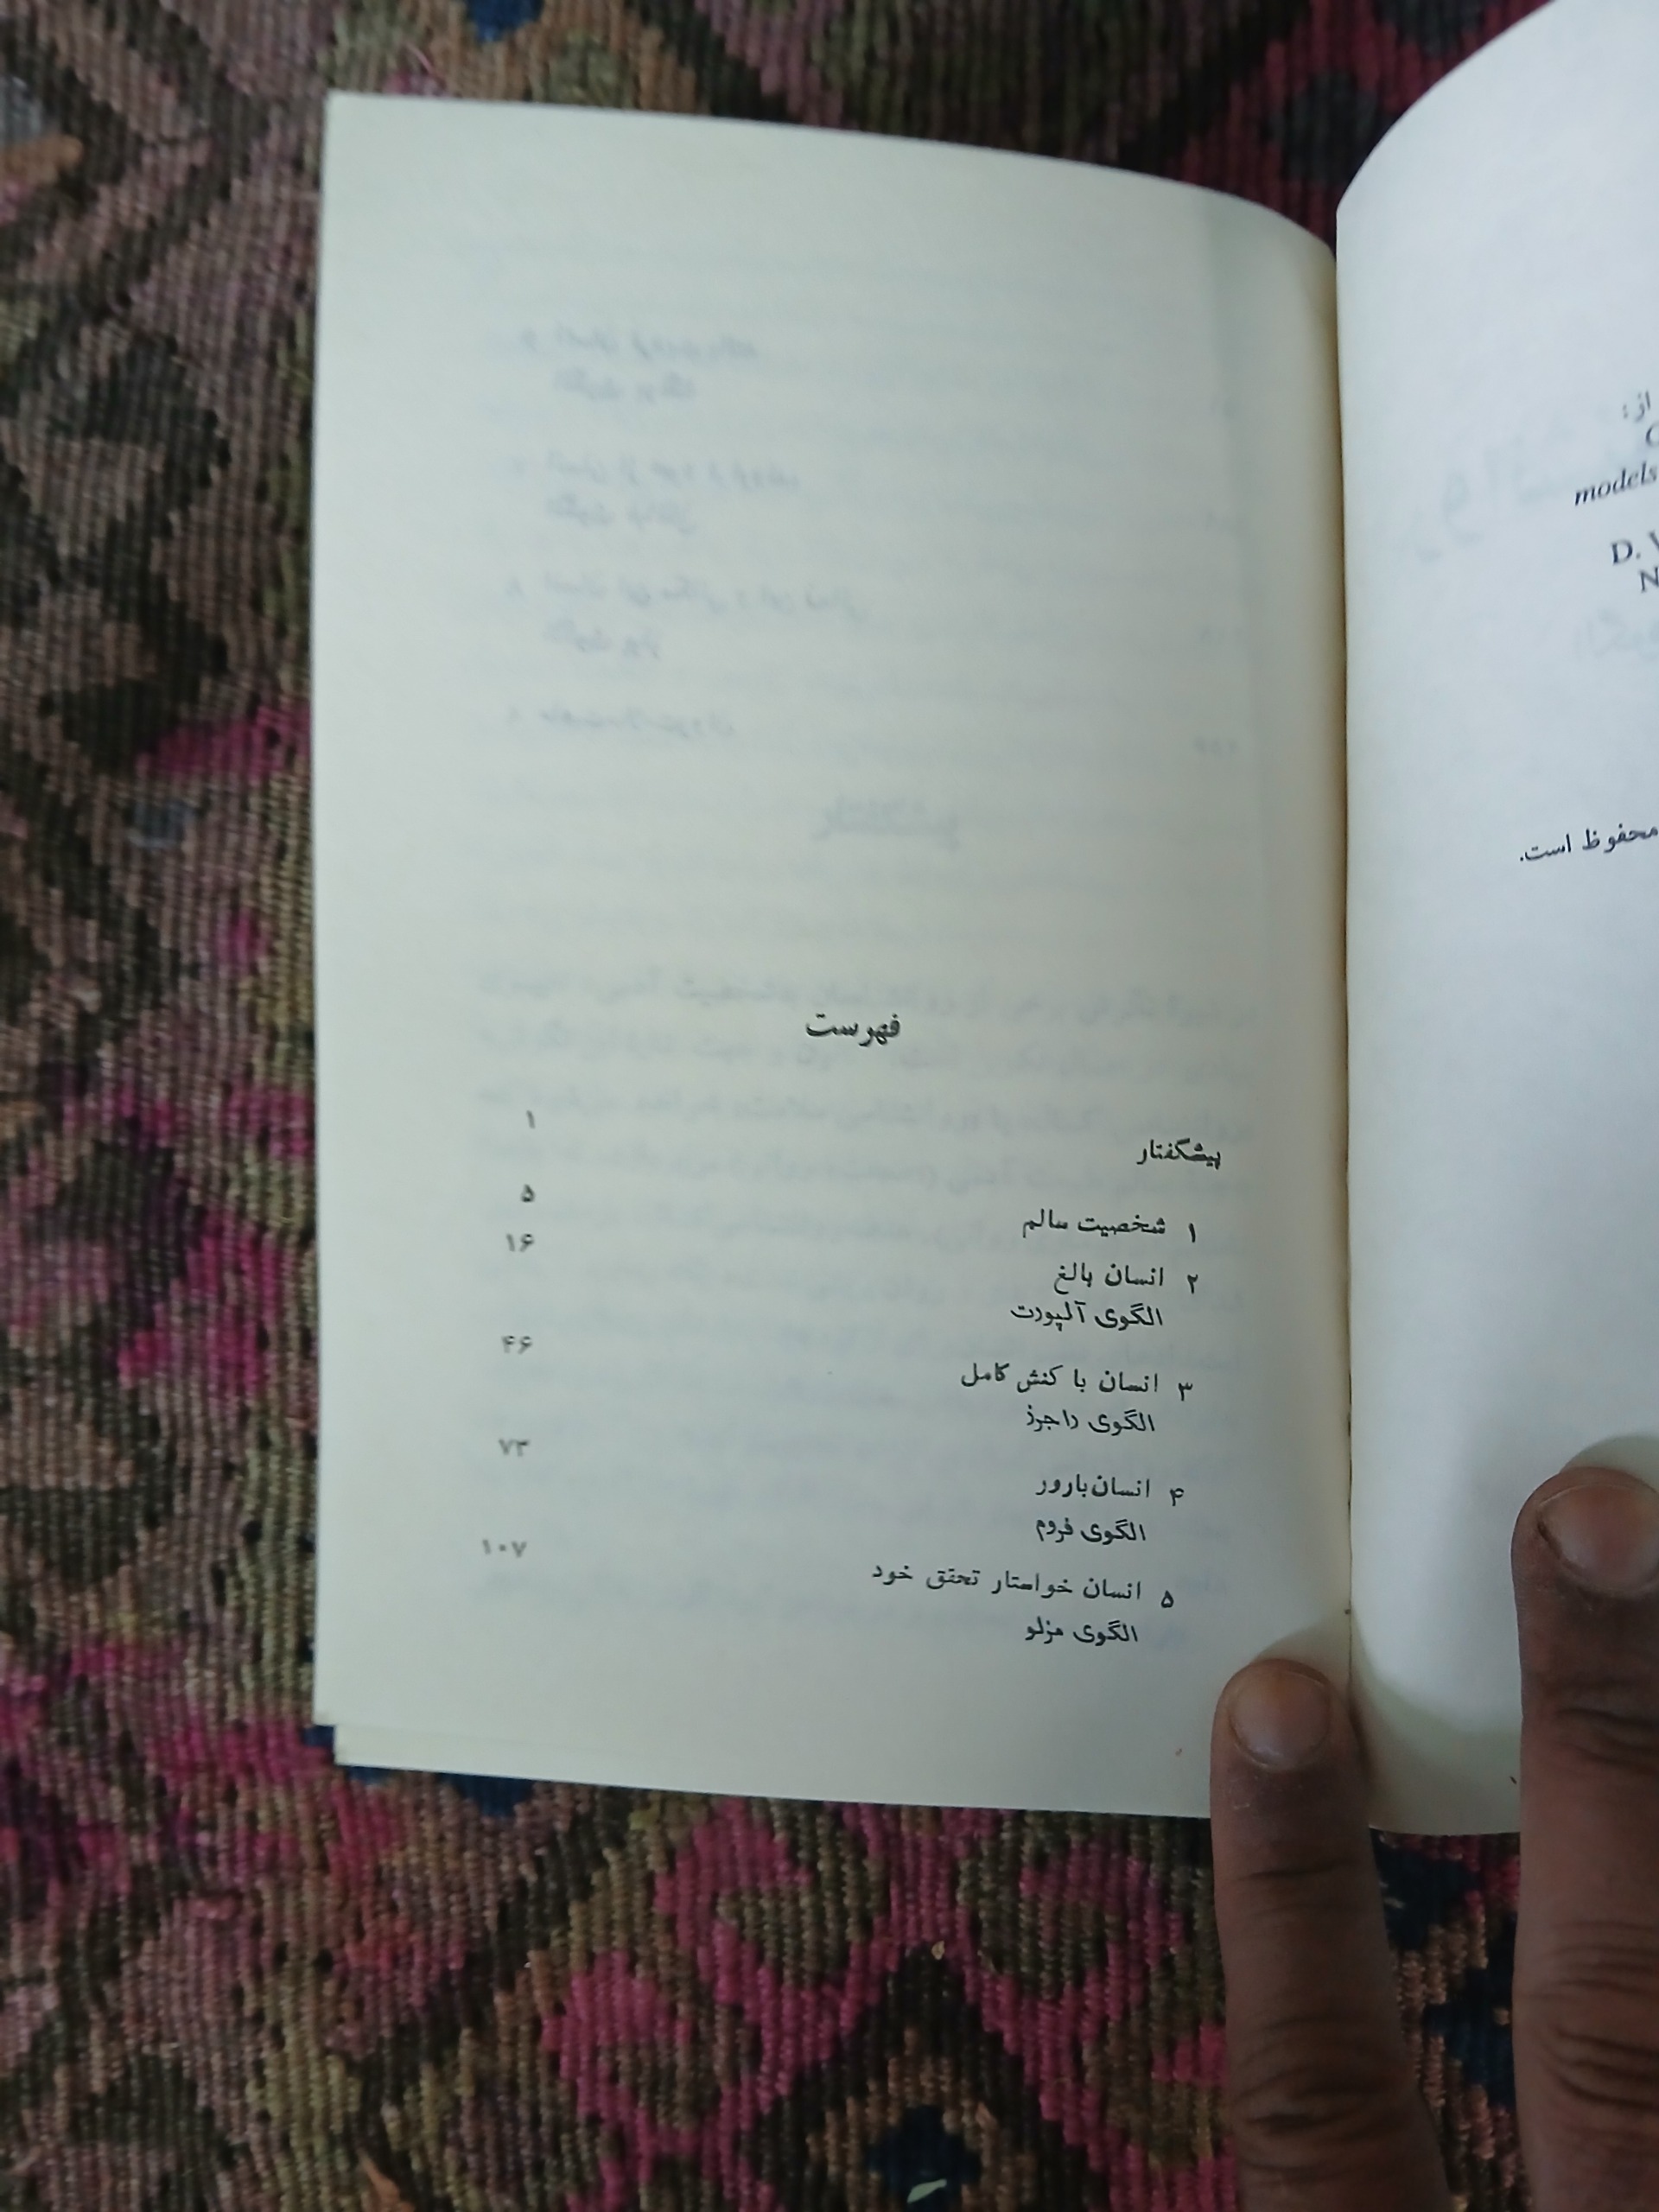 از:
models
D.
محفوظ است.
فهرست
پیشگفتار ۱
۱ شخصیت سالم ۵
۲ انسان بالغ ۱۶
الگوی آلپورت
۳ انسان با کنش کامل ۴۶
الگوی راجرز
۴ انسان‌بارور ۷۳
الگوی فروم
۵ انسان خواستار تحقق خود ۱۰۷
الگوی مزلو